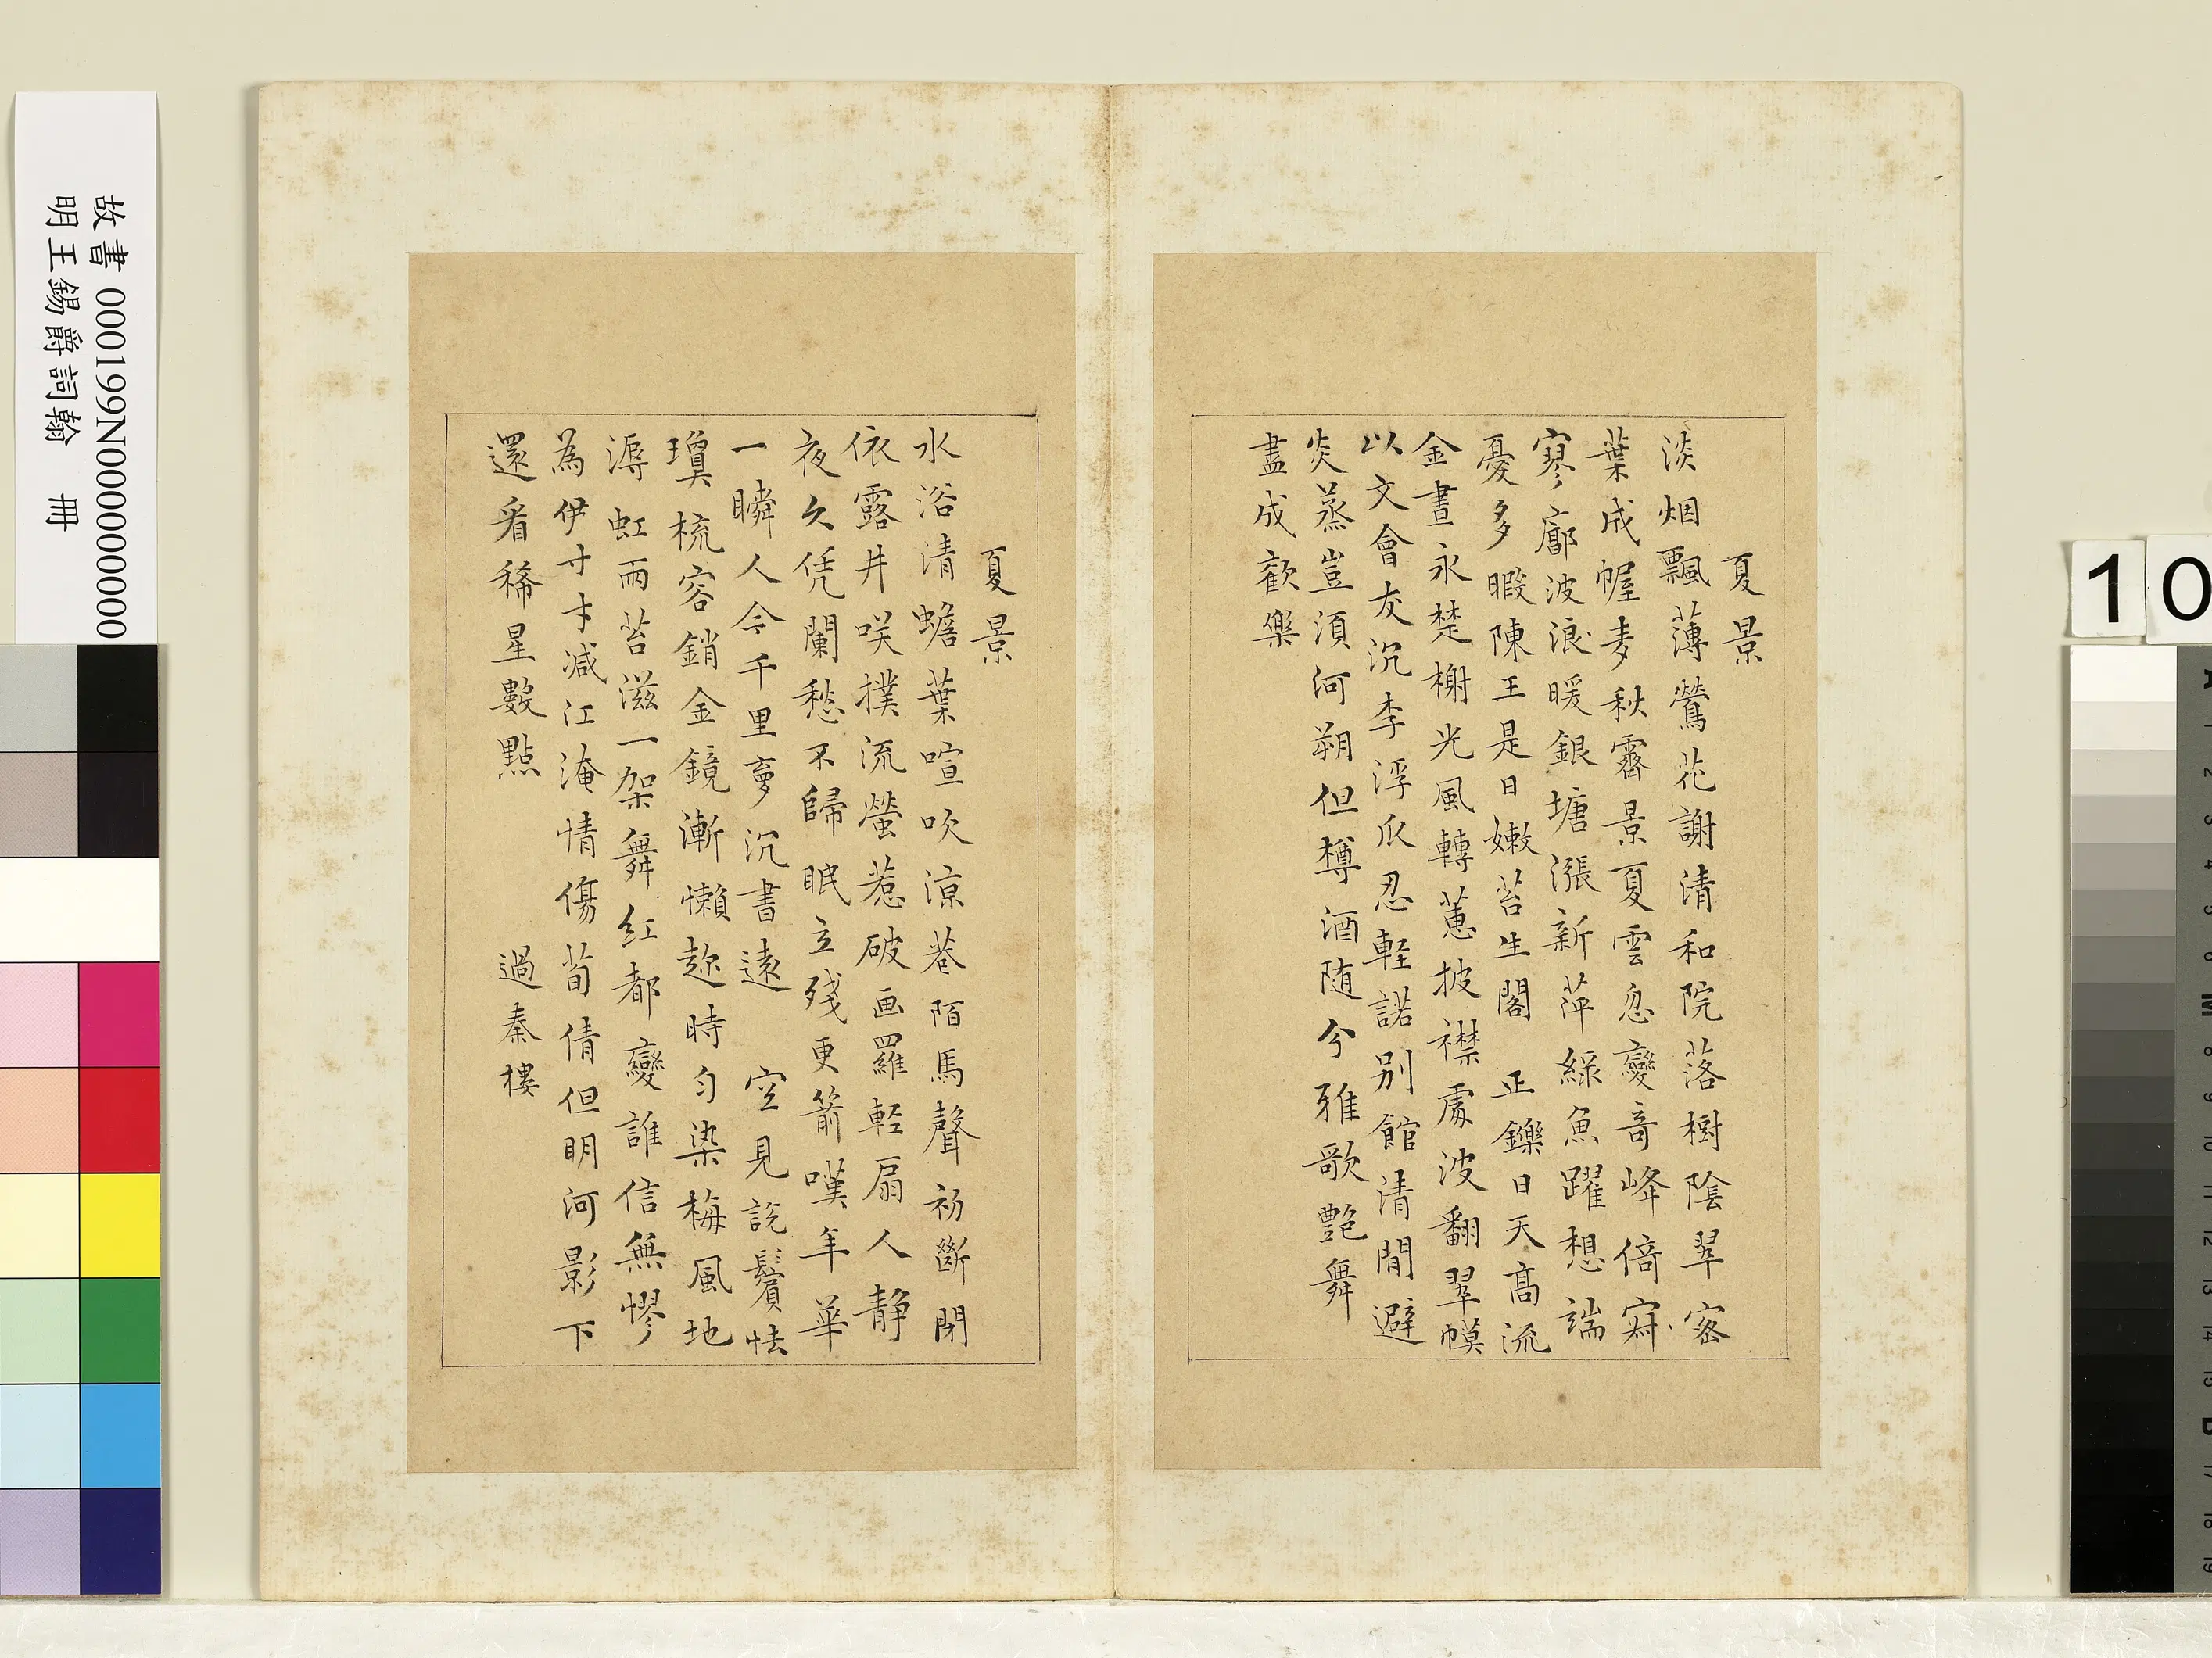 夏景
淡烟飄薄鶯花謝清和院落樹陰翠密
葉成幄麦秋霽景夏雲忽變竒峰倚寂
寥廓波浪暖銀塘漲新萍綠魚躍想端
憂多暇陳王是日嫩苔生閣 正鑠日天高流
金晝永楚榭光風轉蕙披襟處波翻翠幙
以文會友沉李浮瓜忍輕諾别館清閒避
炎蒸豈湏河朔但樽酒随兮雅歌艷舞
盡成歡樂
夏景
水浴清蟾葉喧吹凉巷陌馬聲初斷閒
依露井咲撲流螢惹破画羅輕扇人静
夜久凭闌愁不歸眠立殘更箭嘆年華
一瞬人今千里夣沉書遠 空見說鬢怯
瓊梳容銷金鏡漸懶趂時匀染梅風地
溽虹雨苔滋一架舞紅都變誰信無憀
為伊才減江淹情傷荀倩但明河影下
還看稀星數點 過秦樓
故書 000199N000000000
明王錫爵詞翰 冊
10